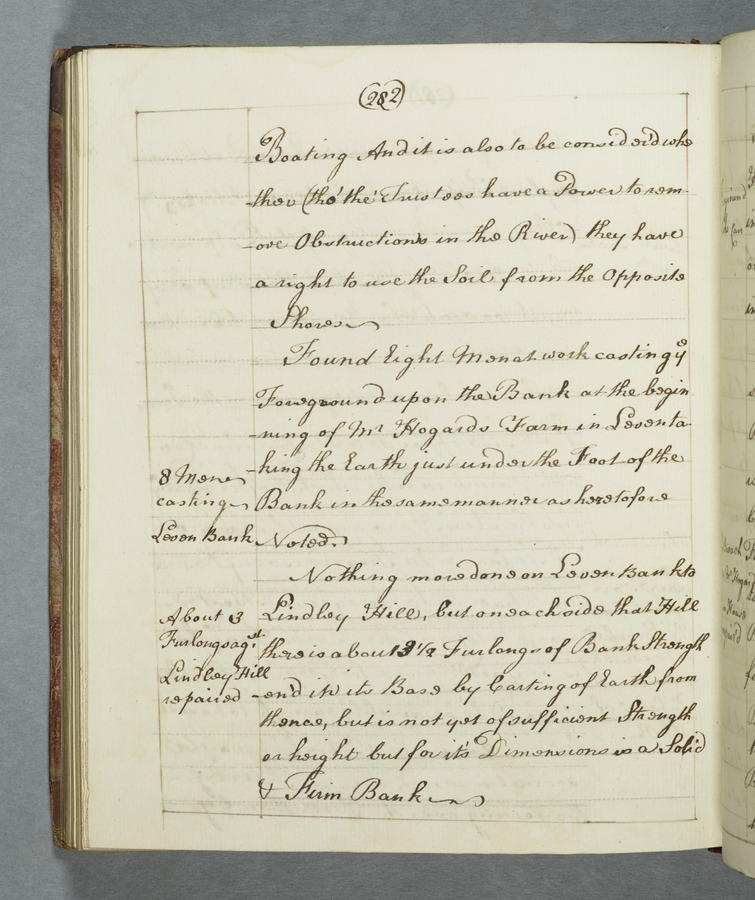 (282)
Boating And it is also to be consider'd whe
-ther (tho' the' Trustees have a Power to rem-
-ove Obstructions in the River) they have
a right to use the Soil from the Opposite
Shores
Found Eight Men at work casting ye
Foreground upon the Bank at the begin
-ning of Mr Hogards Farm in Leven ta-
-king the Earth just under the Foot of the
8 Men
casting
Leven Bank
Bank in the same manner as heretofore
Noted.
Nothing more done on Leven Bank to
About 3
Furlongs agst.
Lindley Hill
repaired
Lindley Hill, but on each side that Hill
there is about 1 1/2 Furlongs of Bank Strength
-en'd in its Base by Carting of Earth from
thence, but is not yet of sufficient Strength
or height but for it's Dimensions is a Solid
& Firm Bank